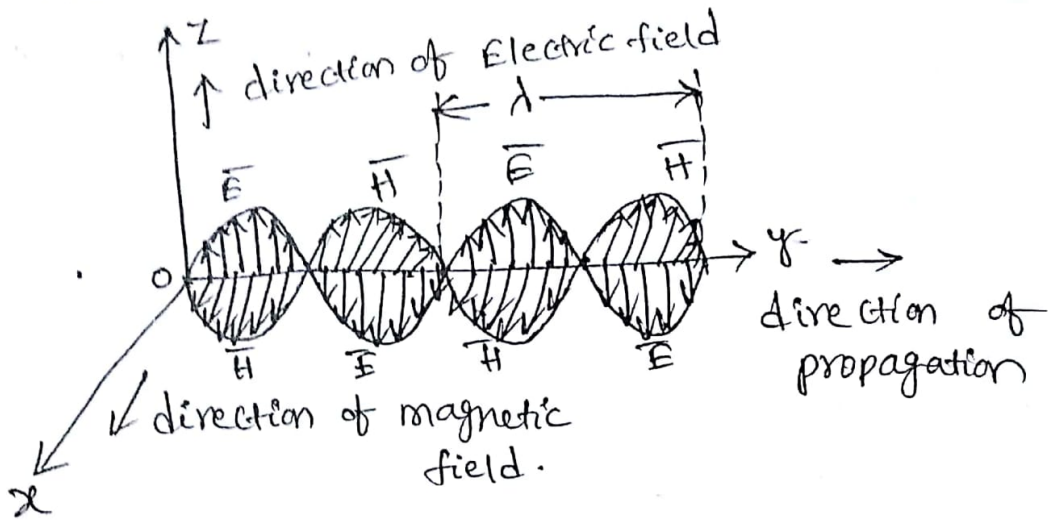 Z
↑ direction of Electric field
λ
E̅ H̅ E̅ H̅
O
y →
direction of propagation
H̅ E̅ H̅ E̅
↙ direction of magnetic
field.
x